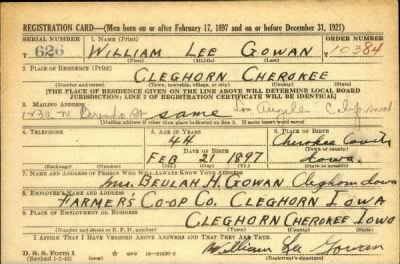 REGISTRATION CARD—(Men born on or after February 17, 1897 and on or before December 31, 1921)
SERIAL NUMBER 1. NAME (Print) ORDER NUMBER
T 626 WILLIAM LEE GOWAN 10384
(First) (Middle) (Last)
2. PLACE OF RESIDENCE (Print)
CLEGHORN CHEROKEE
(Number and street) (Town, township, village, or city) (County) (State)
[THE PLACE OF RESIDENCE GIVEN ON THE LINE ABOVE WILL DETERMINE LOCAL BOARD
JURISDICTION; LINE 2 OF REGISTRATION CERTIFICATE WILL BE IDENTICAL]
3. MAILING ADDRESS
same
[Mailing address if other than place indicated on line 2. If same insert word same]
4. TELEPHONE 5. AGE IN YEARS 6. PLACE OF BIRTH
44 Cherokee County
DATE OF BIRTH (Town or county)
FEB 21 1897 Iowa
(Exchange) (Number) (Mo.) (Day) (Yr.) (State or country)
7. NAME AND ADDRESS OF PERSON WHO WILL ALWAYS KNOW YOUR ADDRESS
Mrs. BEULAH H. GOWAN Cleghorn Iowa
8. EMPLOYER'S NAME AND ADDRESS
FARMER'S CO-OP CO. CLEGHORN IOWA
9. PLACE OF EMPLOYMENT OR BUSINESS
CLEGHORN CHEROKEE IOWA
(Number and street or R. F. D. number) (Town) (County) (State)
I AFFIRM THAT I HAVE VERIFIED ABOVE ANSWERS AND THAT THEY ARE TRUE.
D. S. S. FORM 1
(Revised 1-5-42) GPO 16—21630-2 William Lee Gowan